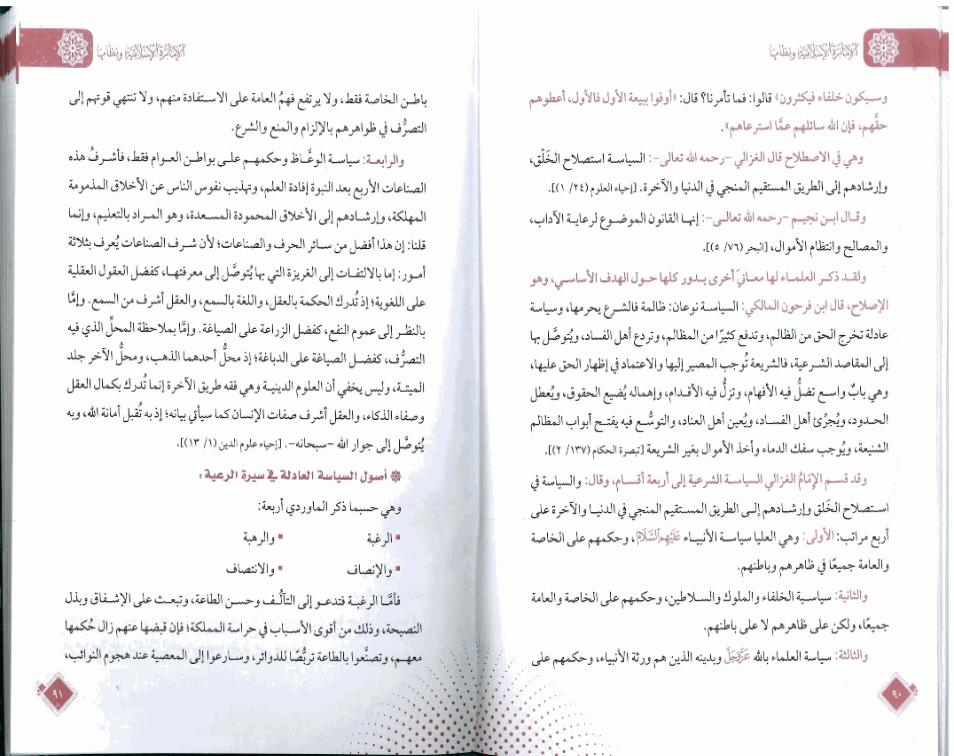 الإمارة الإسلامية ونظامها
وسيكون خلفاء فيكثرون» قالوا: فما تأمرنا؟ قال: «أوفوا ببيعة الأول فالأول، أعطوهم
حقَّهم، فإن الله سائلهم عمَّا استرعاهم».
وهي في الاصطلاح قال الغزالي –رحمه الله تعالى–: السياسة استصلاح الخَلْق،
وإرشادهم إلى الطريق المستقيم المنجي في الدنيا والآخرة. [إحياء العلوم (٢٤/ ١)].
وقال ابن نجيم –رحمه الله تعالى–: إنها القانون الموضوع لرعاية الآداب،
والمصالح وانتظام الأموال، [البحر (٧٦/ ٥)].
ولقد ذكر العلماء لها معانيَ أخرى يدور كلها حول الهدف الأساسي، وهو
الإصلاح، قال ابن فرحون المالكي: السياسة نوعان: ظالمة فالشرع يحرمها، وسياسة
عادلة تخرج الحق من الظالم، وتدفع كثيرًا من المظالم، وتردع أهل الفساد، ويُتوصَّل بها
إلى المقاصد الشرعية، فالشريعة تُوجب المصير إليها والاعتماد في إظهار الحق عليها،
وهي بابٌ واسع تضلُّ فيه الأفهام، وتزلُّ فيه الأقدام، وإهماله يُضيع الحقوق، ويُعطل
الحدود، ويُجرِّئ أهل الفساد، ويُعين أهل العناد، والتوسُّع فيه يفتح أبواب المظالم
الشنيعة، ويُوجب سفك الدماء وأخذ الأموال بغير الشريعة [تبصرة الحكام (١٣٧/ ٢)].
وقد قسم الإمَامُ الغزالي السياسة الشرعية إلى أربعة أقسام، وقال: والسياسة في
استصلاح الخَلق وإرشادهم إلى الطريق المستقيم المنجي في الدنيا والآخرة على
أربع مراتب: الأولى: وهي العليا سياسة الأنبياء عَلَيْهِمُ السَّلَامُ، وحكمهم على الخاصة
والعامة جميعًا في ظاهرهم وباطنهم.
والثانية: سياسية الخلفاء والملوك والسلاطين، وحكمهم على الخاصة والعامة
جميعًا، ولكن على ظاهرهم لا على باطنهم.
والثالثة: سياسة العلماء بالله عَزَّوَجَلَّ وبدينه الذين هم ورثة الأنبياء، وحكمهم على
٩٠
الإمارة الإسلامية ونظامها
باطن الخاصة فقط، ولا يرتفع فهمُ العامة على الاستفادة منهم، ولا تنتهي قوتهم إلى
التصرُّف في ظواهرهم بالإلزام والمنع والشرع.
والرابعة: سياسة الوعَّاظ وحكمهم على بواطن العوام فقط، فأشرفُ هذه
الصناعات الأربع بعد النبوة إفادة العلم، وتهذيب نفوس الناس عن الأخلاق المذمومة
المهلكة، وإرشادهم إلى الأخلاق المحمودة المسعدة، وهو المراد بالتعليم، وإنما
قلنا: إن هذا أفضل من سائر الحرف والصناعات؛ لأن شرف الصناعات يُعرف بثلاثة
أمور: إما بالالتفات إلى الغريزة التي بها يُتوصَّل إلى معرفتها، كفضل العقول العقلية
على اللغوية؛ إذ تُدرك الحكمة بالعقل، واللغة بالسمع، والعقل أشرف من السمع. وإمَّا
بالنظر إلى عموم النفع، كفضل الزراعة على الصياغة. وإمَّا بملاحظة المحلِّ الذي فيه
التصرُّف، كفضل الصياغة على الدباغة؛ إذ محلُّ أحدهما الذهب، ومحلُّ الآخر جلد
الميتة، وليس يخفي أن العلوم الدينية وهي فقه طريق الآخرة إنما تُدرك بكمال العقل
وصفاء الذكاء، والعقل أشرف صفات الإنسان كما سيأتي بيانه؛ إذ به تُقبل أمانة الله، وبه
يُتوصَّل إلى جوار الله –سبحانه–. [إحياء علوم الدين (١/ ١٣)].
أصول السياسة العادلة في سيرة الرعية:
وهي حسبما ذكر الماوردي أربعة:
▪ الرغبة ▪ والرهبة
▪ والإنصاف ▪ والانتصاف
فأمَّا الرغبة فتدعو إلى التآلُّف وحسن الطاعة، وتبعث على الإشفاق وبذل
النصيحة، وذلك من أقوى الأسباب في حراسة المملكة؛ فإن قبضها عنهم زال حُكمها
معهم، وتصنَّعوا بالطاعة تربُّصًا للدوائر، وسارعوا إلى المعصية عند هجوم النوائب،
٩١